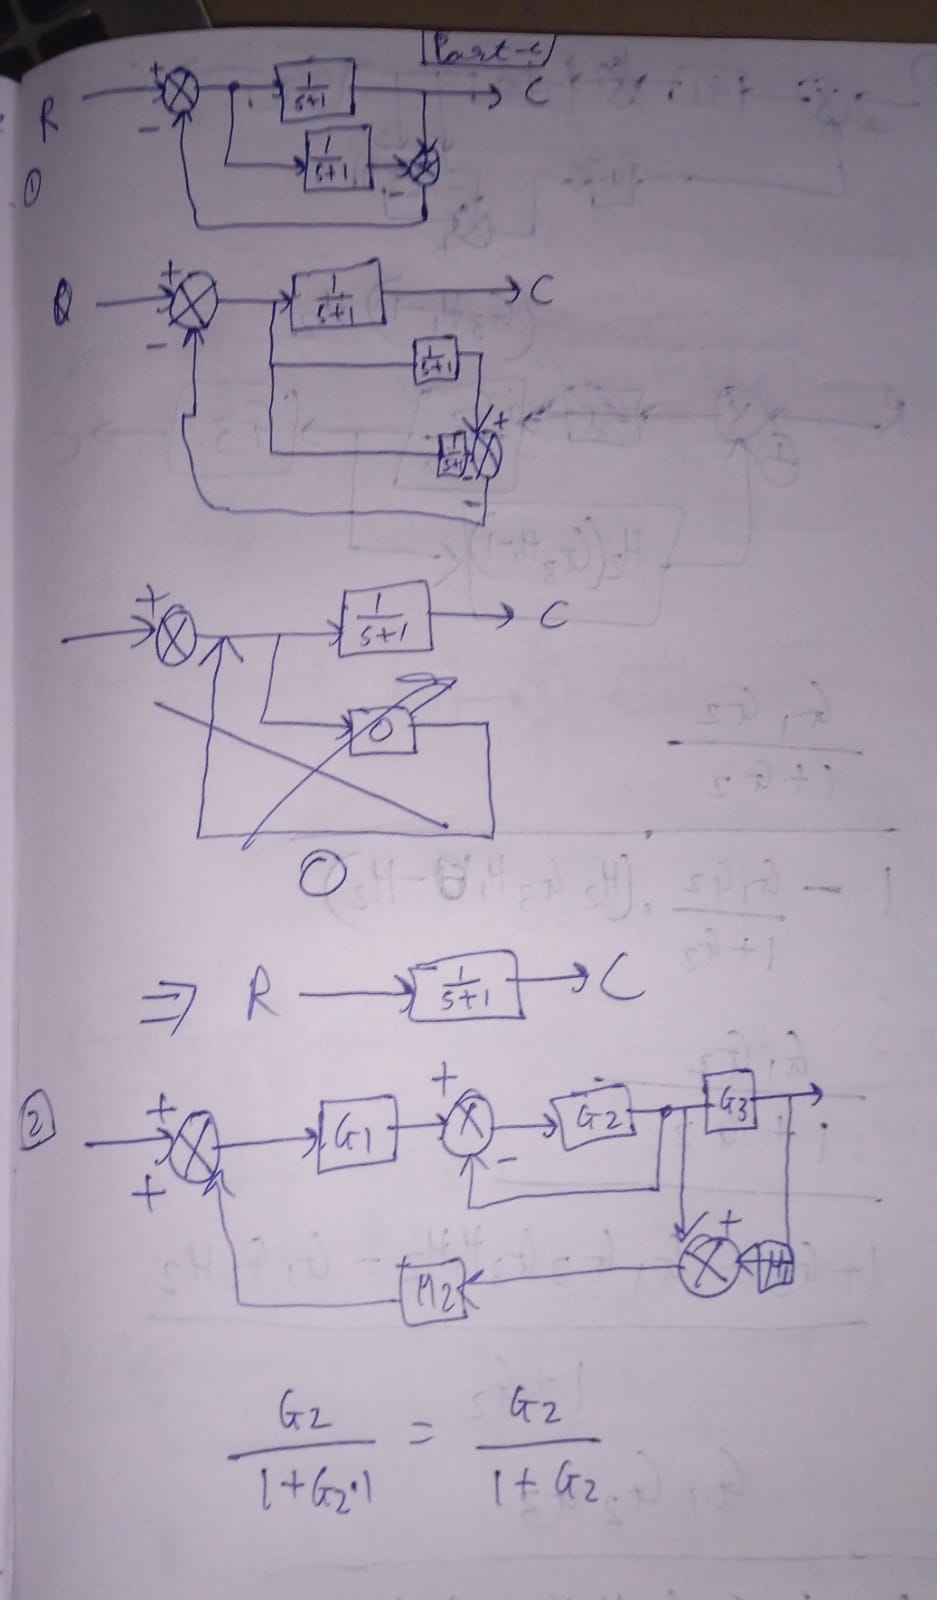 Part-c
+ 1/(s+1) C
R -
① 1/(s+1) -
+ 1/(s+1) C
-
1/(s+1)
+
1/(s+1) -
-
+ 1/(s+1) C
0
0
⇒ R 1/(s+1) C
② + G1 + G2 G3
+ -
+
H2 H1
G2/(1+G2·1) = G2/(1+G2)